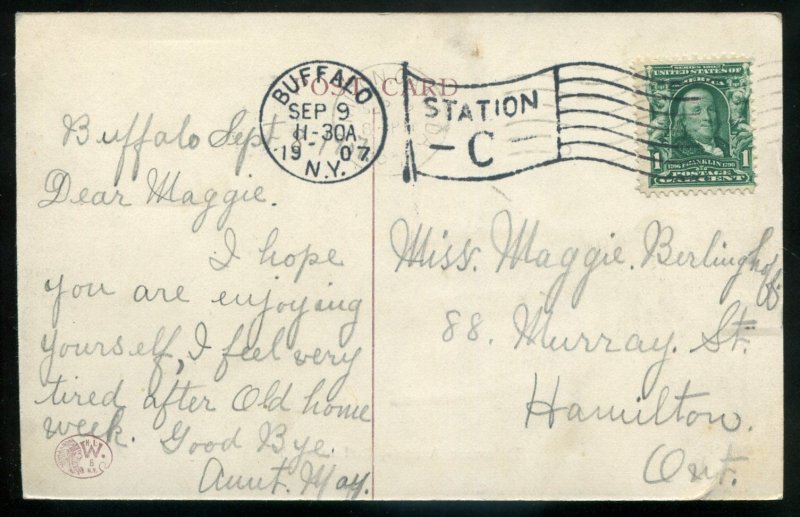 POST CARD
BUFFALO
SEP 9
11-30A
1907
N.Y.
STATION
C
SERIES 1902
UNITED STATES OF
AMERICA
1 FRANKLIN 1
POSTAGE
ONE CENT
Buffalo Sept
Dear Maggie.
I hope
you are enjoying
yourself, I feel very
tired after Old home
week. Good Bye.
Aunt. May.
Miss. Maggie. Berlinghoff.
88. Murray. St.
Hamilton.
Ont.
W.